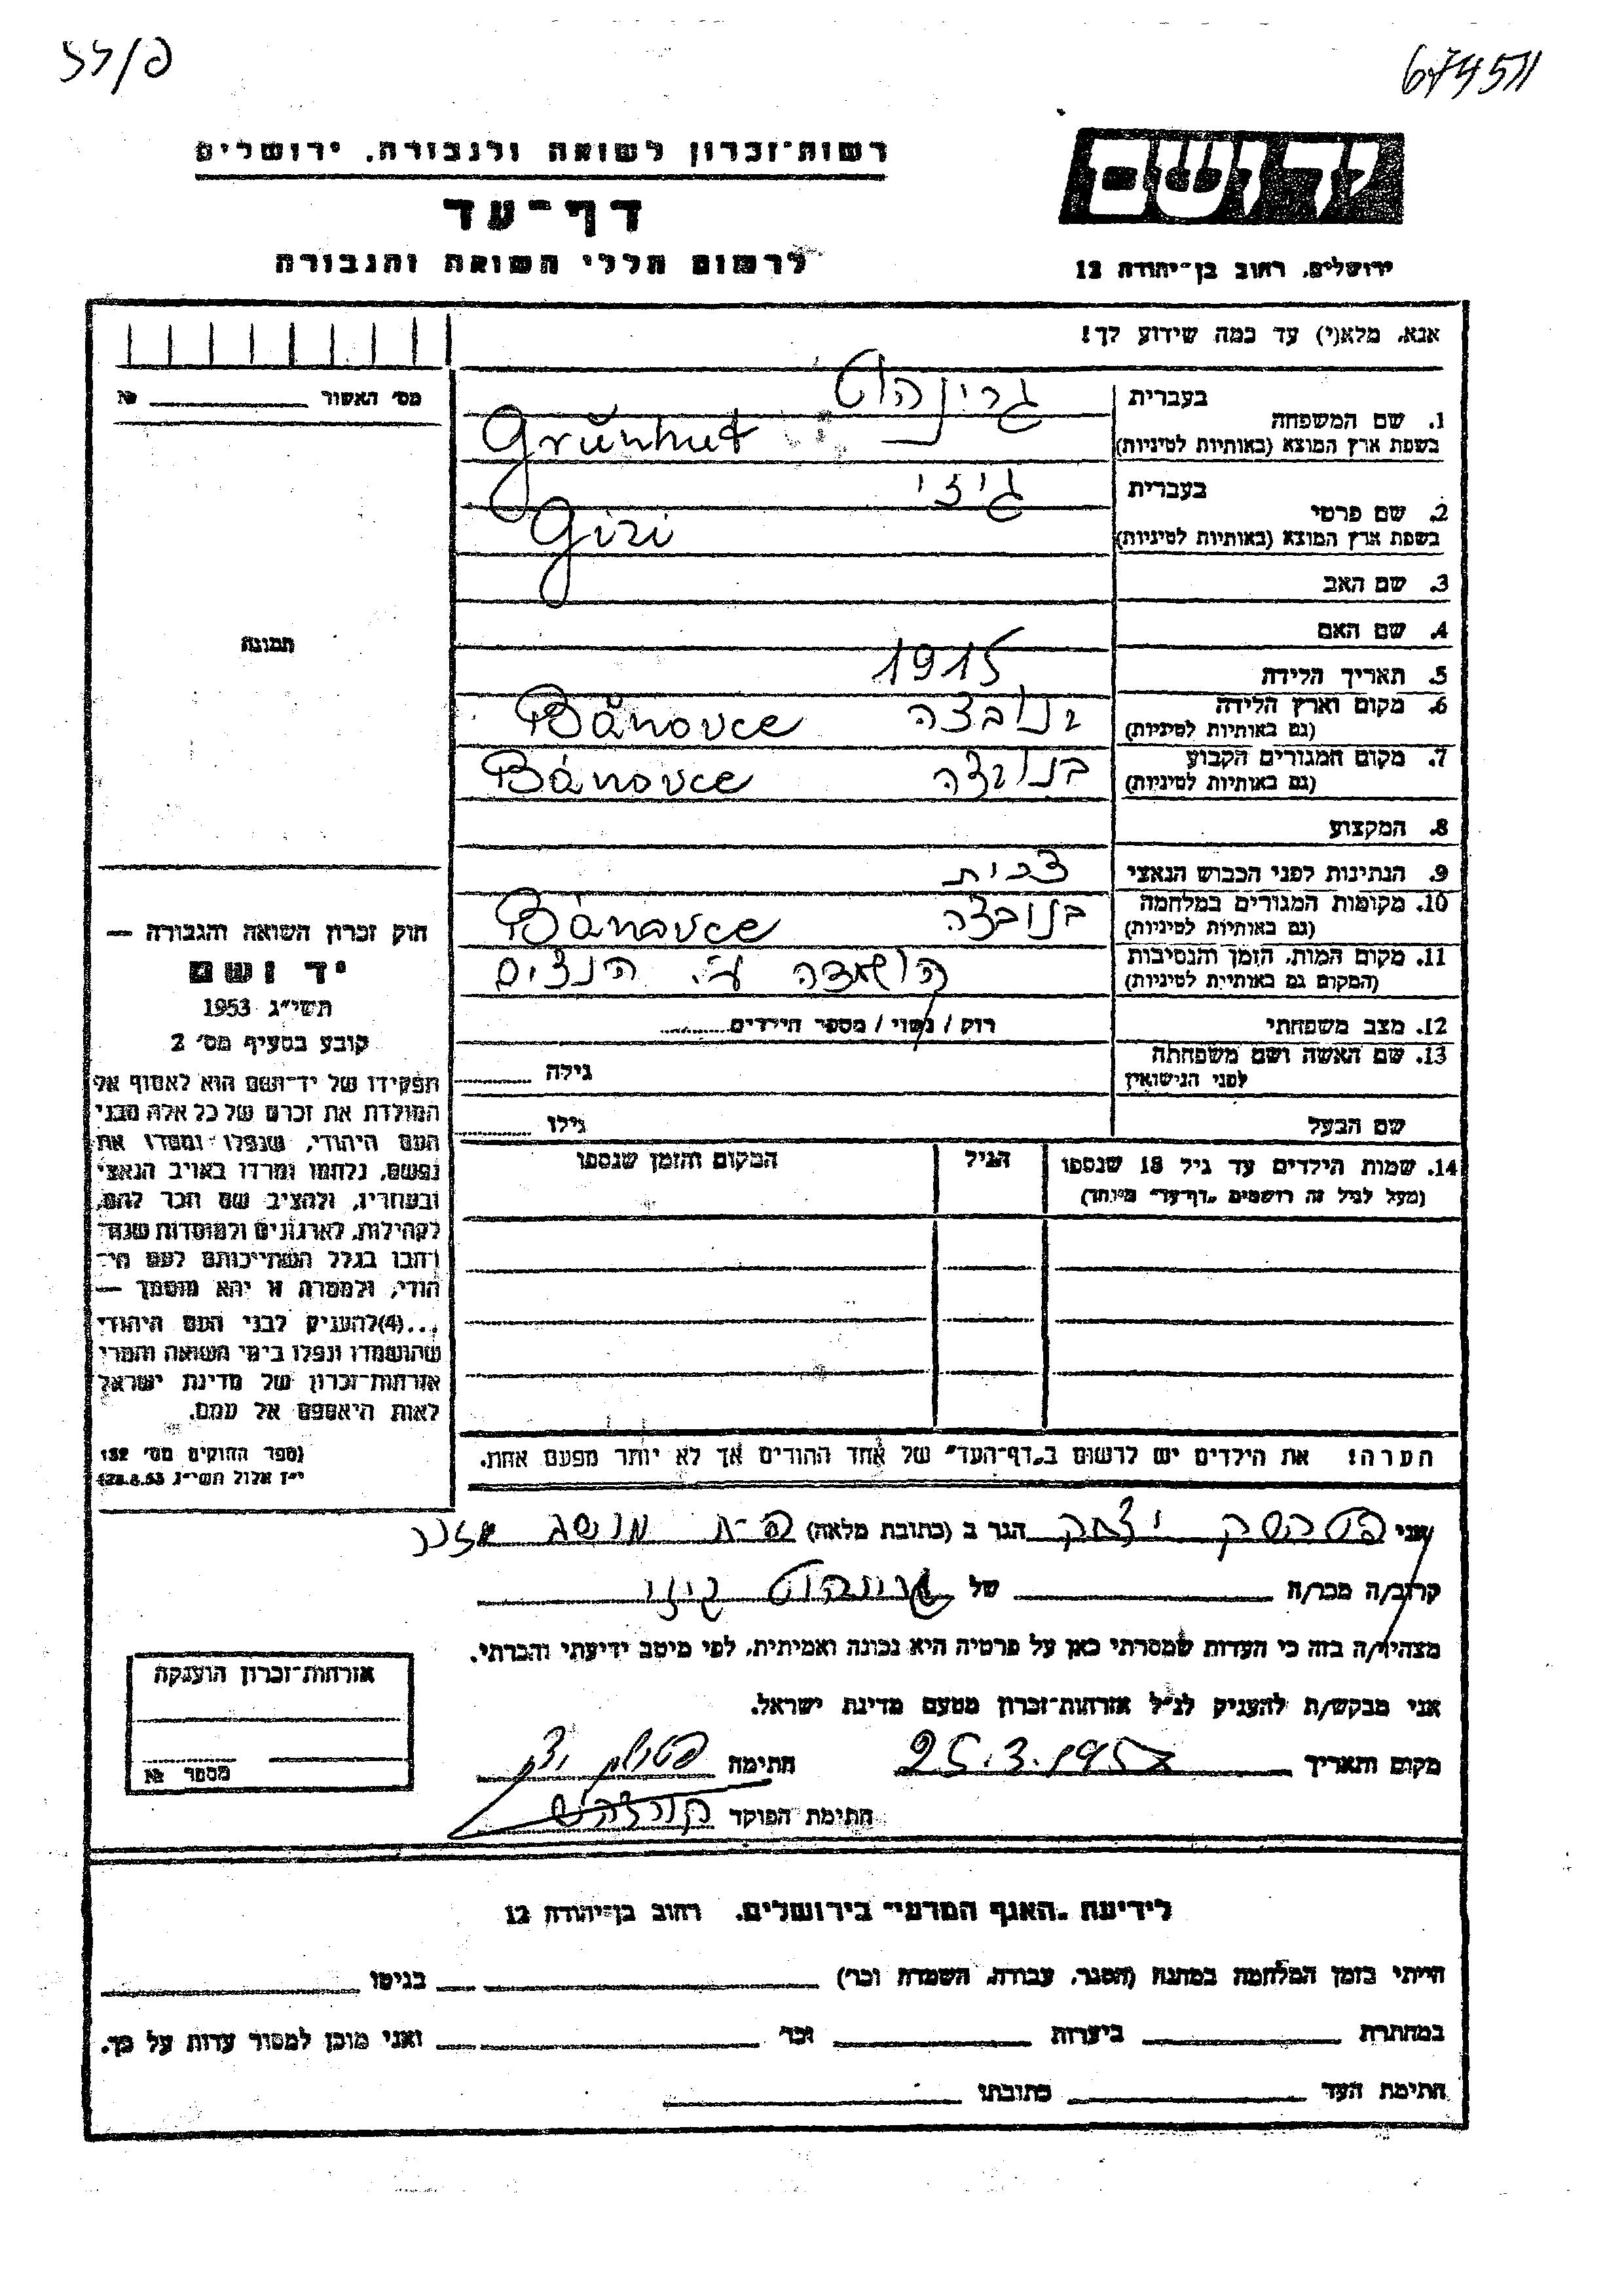 פ/לל
674511
רשות-זכרון לשואה ולגבורה, ירושלים
יד ושם
דף-עד
לרשום חללי השואה והגבורה
ירושלים, רחוב בן-יהודה 12
אנא, מלא(י) עד כמה שידוע לך!
מס׳ האשור № ________
1. שם המשפחה בעברית גרינהוט
בשפת ארץ המוצא (באותיות לטיניות) Grünhut
2. שם פרטי בעברית גיזי
בשפת ארץ המוצא (באותיות לטיניות) Gizi
3. שם האב
4. שם האם
5. תאריך הלידה 1915
6. מקום וארץ הלידה (גם באותיות לטיניות) בנובצה Bánovce
7. מקום המגורים הקבוע (גם באותיות לטיניות) בנובצה Bánovce
8. המקצוע
9. הנתינות לפני הכבוש הנאצי צ׳כית
10. מקומות המגורים במלחמה (גם באותיות לטיניות) בנובצה Bánovce
11. מקום המות, הזמן והנסיבות (המקום גם באותיות לטיניות) הושמדה ע״י הנצים
12. מצב משפחתי רוק / נשוי / מספר הילדים........
13. שם האשה ושם משפחתה לפני הנישואין גילה ........
שם הבעל גילו ........
14. שמות הילדים עד גיל 18 שנספו הגיל המקום והזמן שנספו
(מעל לגיל זה רושמים „דף-עד״ מיוחד)
הערה: את הילדים יש לרשום ב„דף-העד״ של אחד ההורים אך לא יותר מפעם אחת.
תמונה
חוק זכרון השואה והגבורה —
יד ושם
תשי״ג 1953
קובע בסעיף מס׳ 2
תפקידו של יד-ושם הוא לאסוף אל
המולדת את זכרם של כל אלה מבני
העם היהודי, שנפלו ומסרו את
נפשם, נלחמו ומרדו באויב הנאצי
ובעוזריו, ולהציב שם וזכר להם,
לקהילות, לארגונים ולמוסדות שנח-
רבו בגלל השתייכותם לעם הי-
הודי, ולמטרה זו יהא מוסמך —
...(4) להעניק לבני העם היהודי
שהושמדו ונפלו בימי השואה והמרי
אזרחות-זכרון של מדינת ישראל
לאות היאספם אל עמם.
(ספר החוקים מס׳ 132
י״ז אלול תשי״ג 28.8.53)
אני יצחק הגר ב (כתובת מלאה) מושב
קרוב/ה מכר/ה ________ של גרינהוט גיזי
מצהיר/ה בזה כי העדות שמסרתי כאן על פרטיה היא נכונה ואמיתית, לפי מיטב ידיעתי והכרתי.
אני מבקש/ת להעניק לנ״ל אזרחות-זכרון מטעם מדינת ישראל.
מקום ותאריך 25.3.1957 חתימה
חתימת הפוקד
אזרחות-זכרון הוענקה
מספר №
לידיעת „האגף המדעי״ בירושלים, רחוב בן-יהודה 12
הייתי בזמן המלחמה במחנה (הסגר, עבודה, השמדה וכו׳) ________ בגיטו ________
במחתרת ________ ביערות ________ וכו׳ ________ ואני מוכן למסור עדות על כך.
חתימת העד ________ כתובתו ________